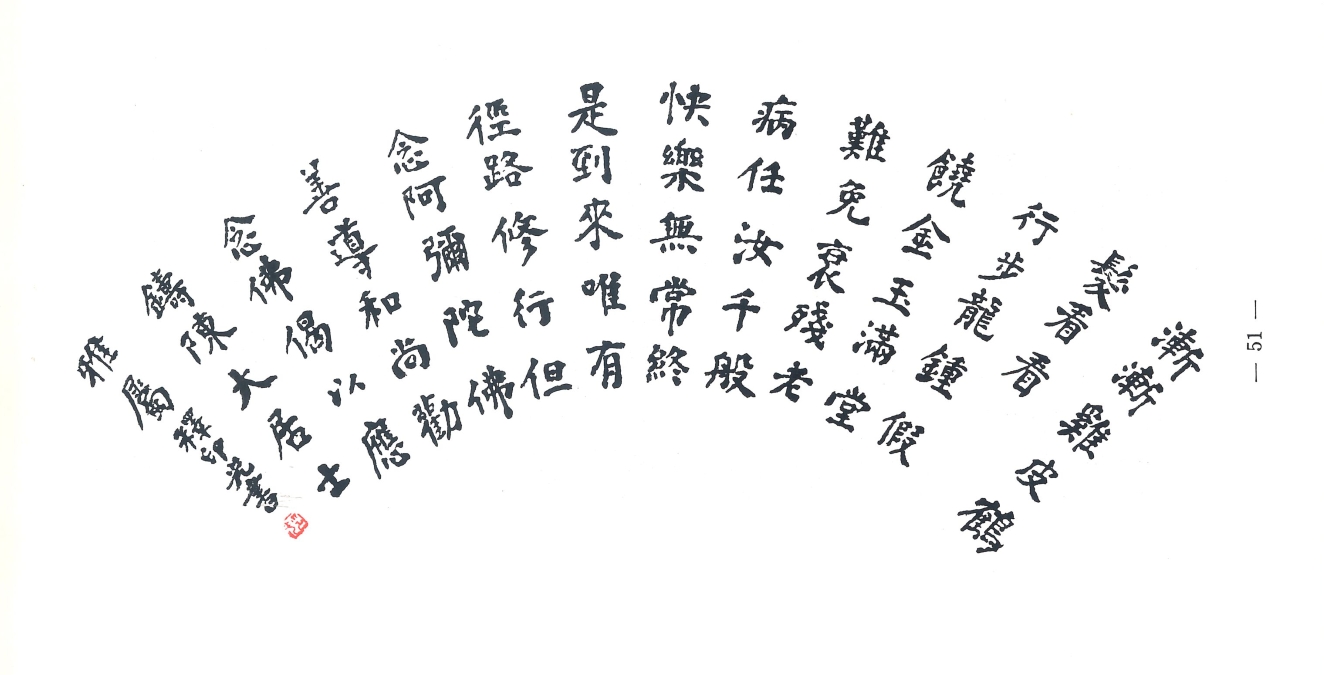 漸漸雞皮鶴
髮看看
行步龍鍾假
饒金玉滿堂
難免衰殘老
病任汝千般
快樂無常終
是到來唯有
徑路修行但
念阿彌陀佛
善導和尚勸
念佛偈以應
鑄陳大居士
雅屬 釋印光書
— 51 —